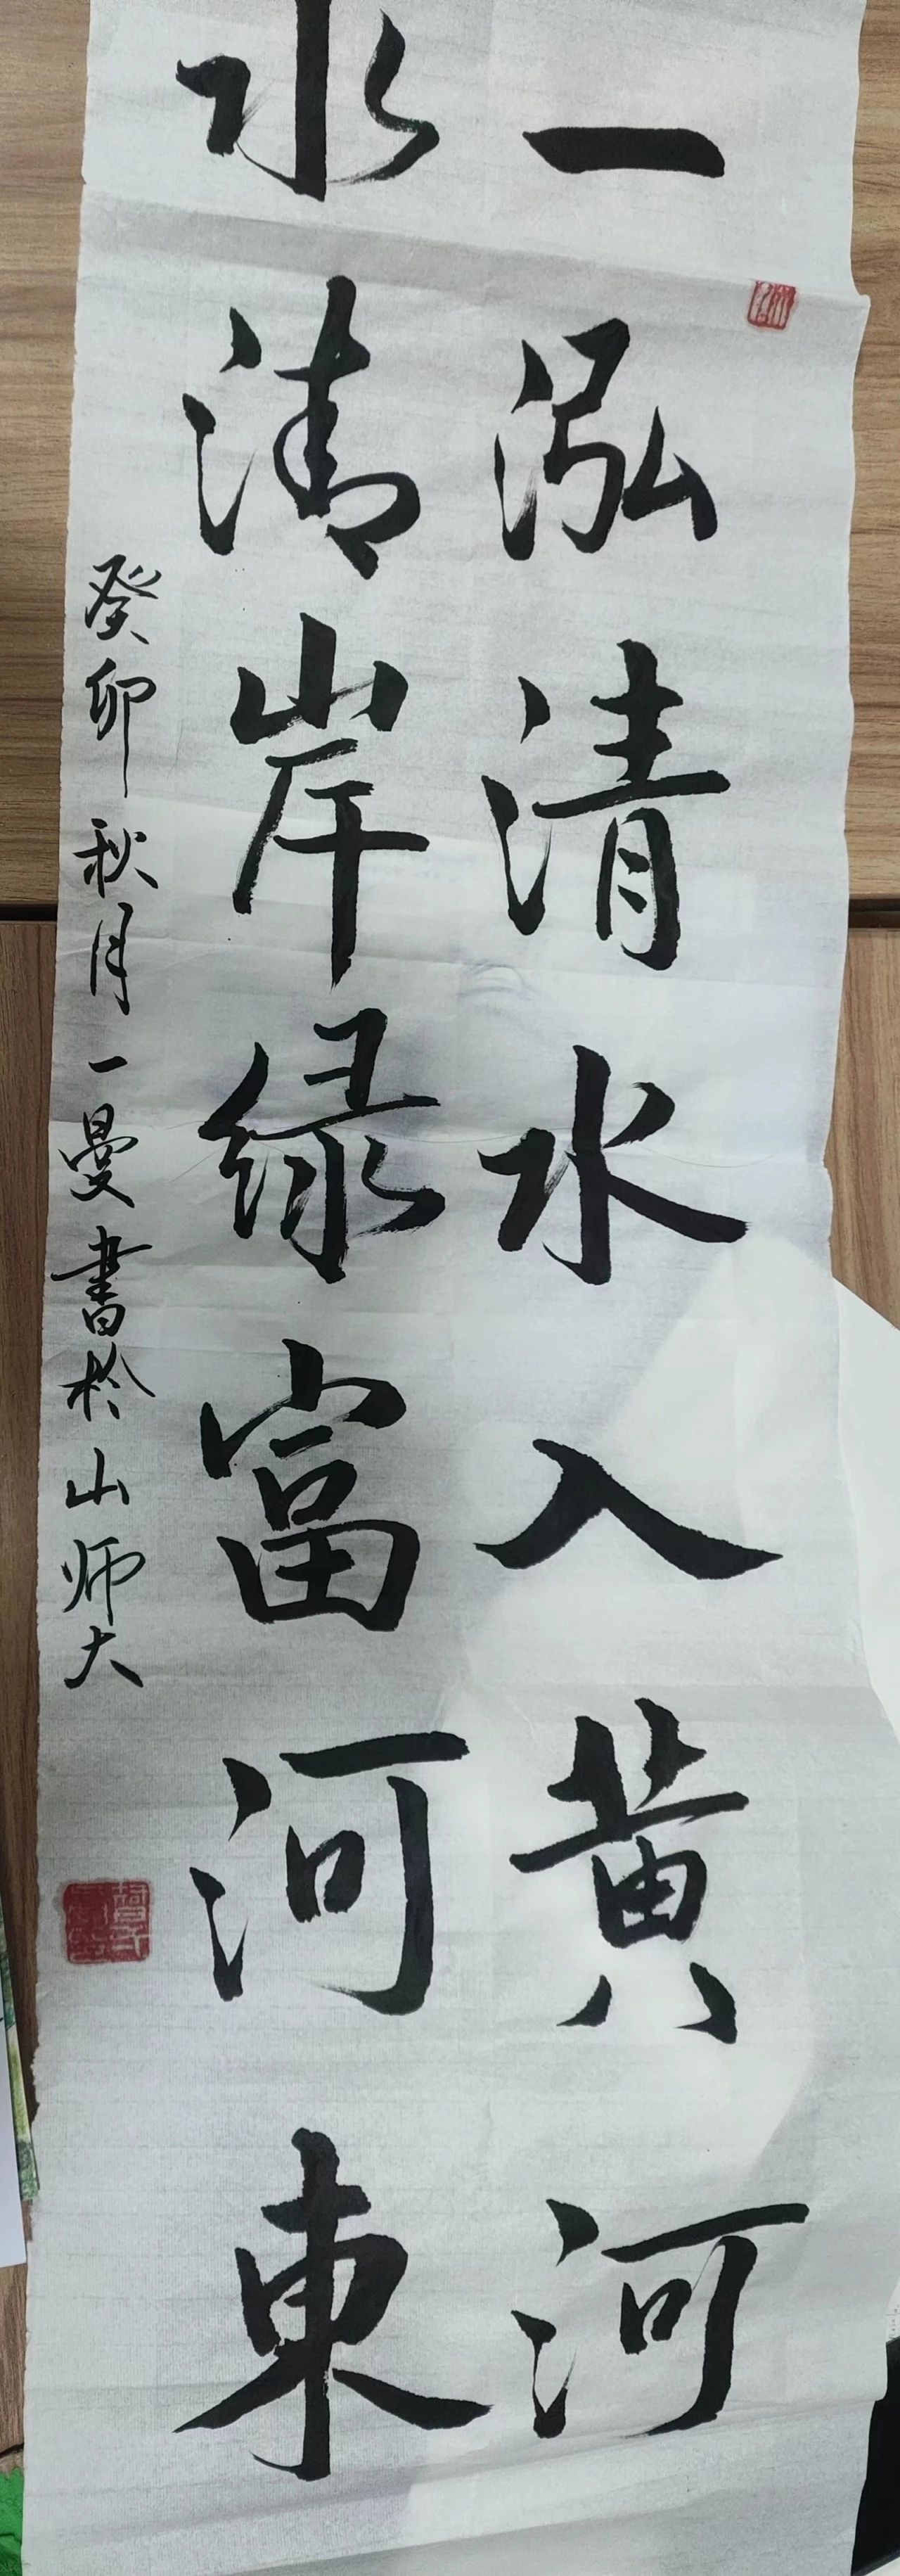 一泓清水入黄河
水清岸绿富河東
癸卯秋月一曼書於山师大